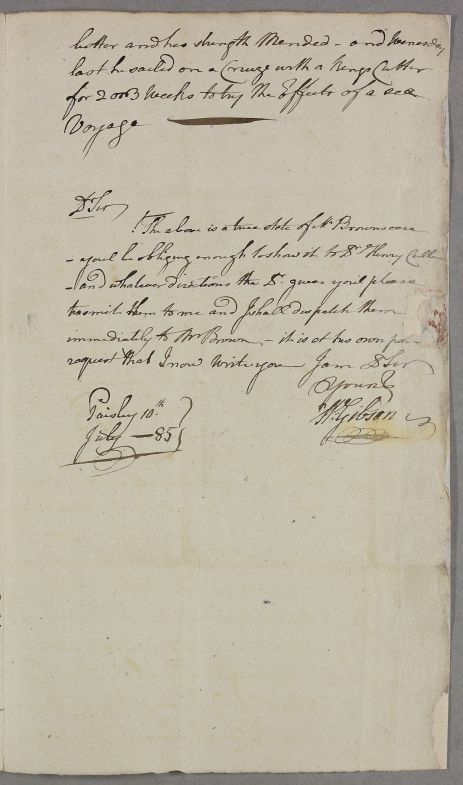 better and his strength Mended - and Wenesday
last he sailed on a Cruize with a Kings Cutter
for 2 or 3 Weeks to try the Effects of a sea
Voyage
Dr Sir
The above is a true state of Mr Browns case
- you'l be obliging enough to show it to Dr Henry Cullen
- and whatever directions the Dr. gives you'l please
trasmit them to me and I shall despatch them
immediatly to Mr Brown - it is at his own
request that I now Write you I am Dr Sir
Yours
Wm Gibson
Paisley 10th
July - 85